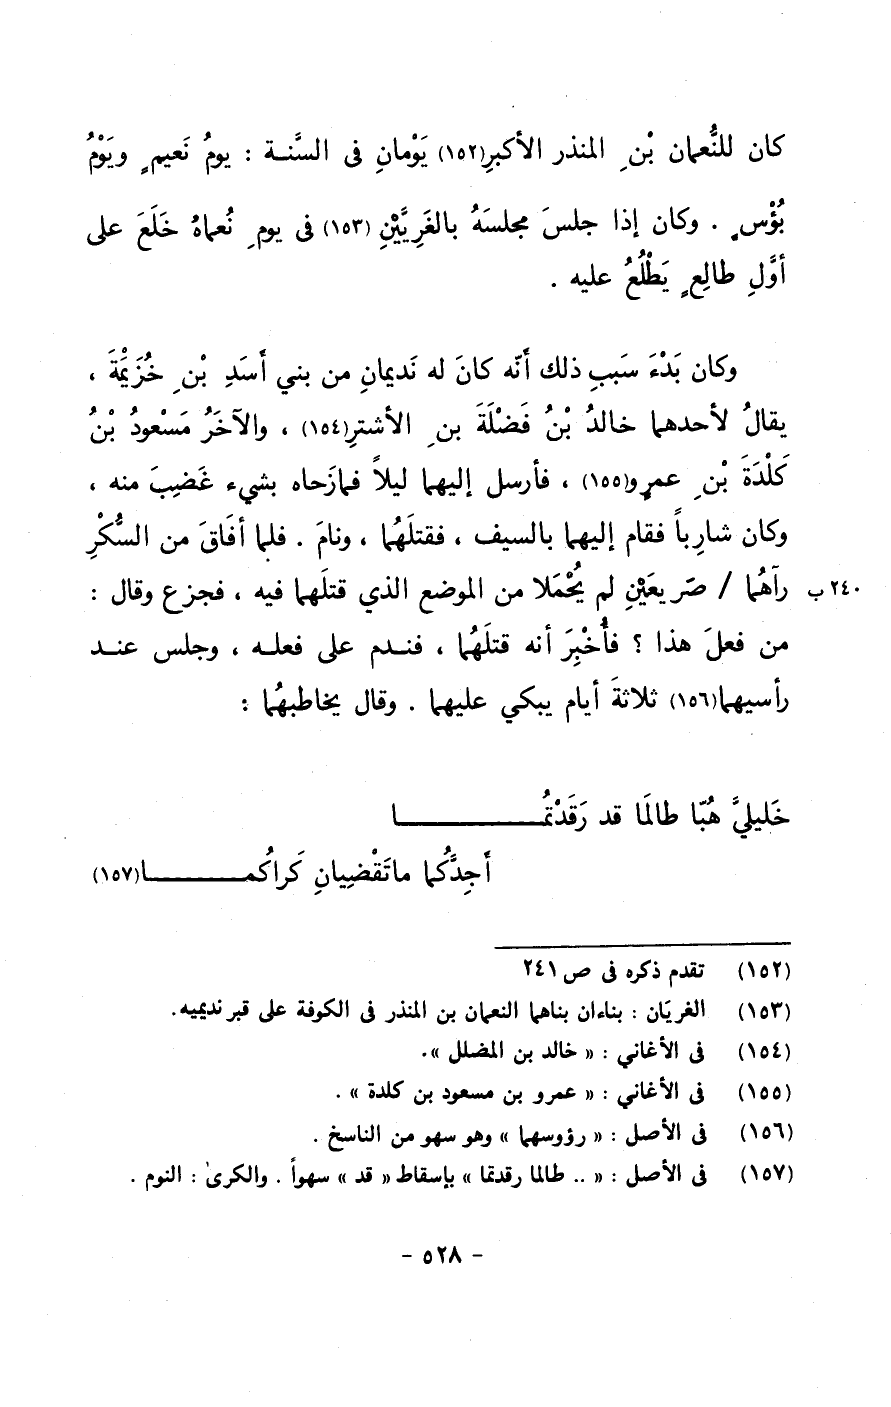 كان للنُّعمان بْنِ المنذر الأكبرِ(١٥٢) يَوْمانِ فى السَّنـة : يومُ نَعيمٍ ويَوْمُ
بُؤْسٍ . وكان إذا جلسَ مجلسَهُ بالغَرِيَّيْنِ (١٥٣) فى يومِ نُعماهُ خَلَعَ على
أوَّلِ طالِعٍ يَطْلُعُ عليه .
وكان بَدْءَ سَببِ ذلك أنّه كانَ له نَديمانِ من بني أسَدِ بْنِ خُزَيْمَةَ ،
يقالُ لأحدهما خالدُ بْنُ فَضْلَةَ بنِ الأشترِ(١٥٤) ، والآخَرُ مَسْعودُ بْنُ
كَلْدَةَ بْنِ عمرٍو(١٥٥) ، فأرسل إليهما ليلاً فمازَحاه بشيء غَضِبَ منه ،
وكان شارِباً فقام إليهما بالسيف ، فقتلَهُما ، ونامَ . فلما أفَاقَ من السُّكْرِ
رآهُما / صَريعَيْنِ لم يُحْمَلا من الموضع الذي قتلَهما فيه ، فجزع وقال : ٢٤٠ ب
من فعلَ هذا ؟ فأُخْبِرَ أنه قتلَهُما ، فنـدم على فعلـه ، وجلس عنـد
رأسيهما(١٥٦) ثلاثةَ أيام يبكي عليهما . وقال يخاطبهُما :
خَليليَّ هُبّا طالَما قد رَقَدْتُمـــــــا
أجِدَّكُما ماتَقْضِيانِ كَراكُمـــــا(١٥٧)
(١٥٢) تقدم ذكره فى ص ٢٤١
(١٥٣) الغريَان : بناءان بناهما النعمان بن المنذر فى الكوفة على قبر نديميه.
(١٥٤) فى الأغاني : « خالد بن المضلل ».
(١٥٥) فى الأغاني : « عمرو بن مسعود بن كلدة » .
(١٥٦) فى الأصل : « رؤوسهما » وهو سهو من الناسخ .
(١٥٧) فى الأصل : « .. طالما رقدتما » بإسقاط « قد » سهواً . والكرى : النوم .
- ٥٢٨ -